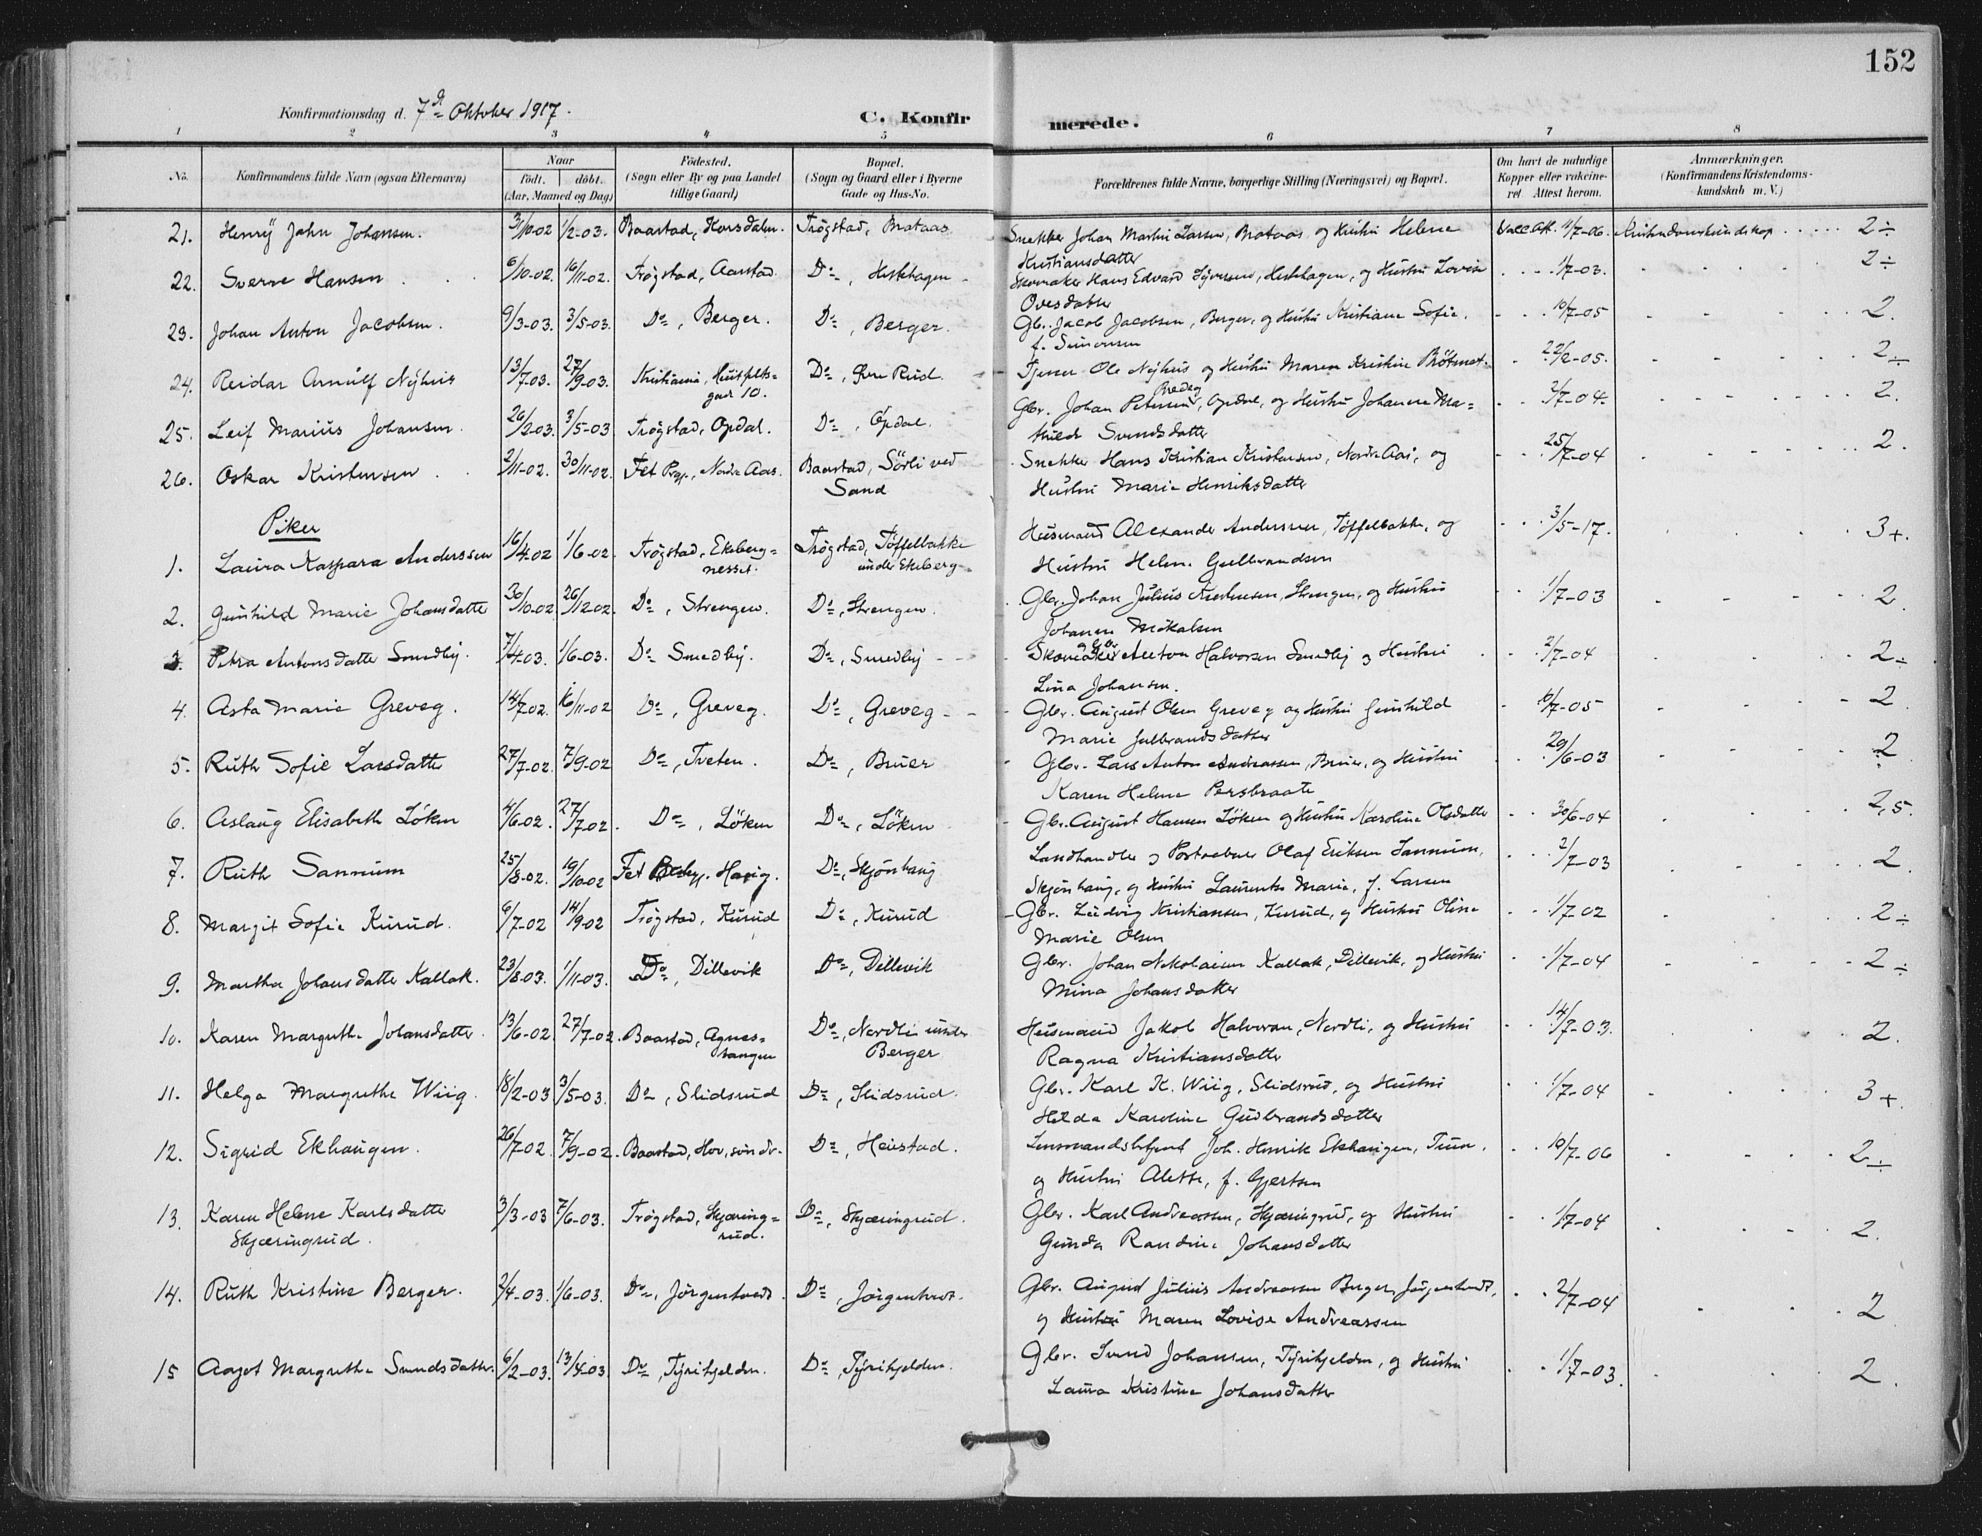 152
Konfirmationsdag d. 7de Oktober 1917.
C. Konfirmerede.
1 2 3 4 5 6 7 8
No.
Konfirmandens fulde Navn (ogsaa Efternavn)
Naar
födt. döbt.
(Aar, Maaned og Dag)
Födested.
(Sogn eller By og paa Landet
tillige Gaard)
Bopæl.
(Sogn og Gaard eller i Byerne
Gade og Hus-No.
Forældrenes fulde Navne, borgerlige Stilling (Næringsvei) og Bopæl.
Om havt de naturlige
Kopper eller vakcine-
ret. Attest herom.
Anmærkninger.
(Konfirmandens Kristendoms-
kundskab m. V.)
21. Henry John Johansen. 3/10-02 1/2-03. Baastad, Korsdalen. Trøgstad, Brataas Snekker Johan Martin Larsen, Brataas, og Hustru Helene Vacc. Att. 11/7-06. Kristendomskundskap 2÷
Kristiansdatter
22. Sverre Hansen 6/10-02. 16/11-02. Trøgstad, Aarstad Do, Hestehagen Skomaker Hans Edvard Syversen, Hestehagen, og Hustru Lovise 1/7-03. 2÷
Ovesdatter
23. Johan Anton Jacobsen. 9/3-03. 3/5-03. Do, Berger. Do, Berger. Gbr. Jacob Jacobsen, Berger, og Hustru Kristiane Sofie, 10/7-05 2.
f. Simensen
24. Reidar Arnulf Nyhus 13/7-03. 27/9-03. Kristiania, Huitfelts- Do, Øvre Rud. Tjener Ole Nyhus og Hustru Maren Kristine 22/2-05. 2÷
gade 10.
25. Leif Marius Johansen. 26/2-03. 3/5-03 Trøgstad, Opdal. Do, Opdal. Gbr. Johan Petersen, Opdal, og Hustru Johanne Ma- 2/7-04. 2.
thilde Svendsdatter
26. Oskar Kristensen 2/11-02. 30/11-02. Fet Prgj., Nordre Aas. Baastad, Sörli ved Snekker Hans Kristian Kristensen, Nordre Aas, og 25/7-04 2.
Sand Hustru Marie Henriksdatter
Piker
1. Laura Kaspara Anderssen 16/4-02 1/6-02. Trøgstad, Ekeberg- Trøgstad, Töffelbakke Husmand Alexander Andersen, Töffelbakke, og 3/5-17. 3+.
nesset. under Ekeberg Hustru Helene Gulbrandsen
2. Gunhild Marie Johansdatter 30/10-02 26/12-02. Do, Strengen. Do, Strengen. Gbr. Johan Julius Kristensen, Strengen, og Hustru 1/7-03 2.
Johanne Mikalsen
3. Petra Antonsdatter Smedby. 7/4-03. 1/6-03. Do Smedby. Do, Smedby Skomaker Anton Halvorsen Smedby og Hustru 2/7-04 2÷
Lina Johansen.
4. Asta Marie Greveg. 14/7-02. 16/11-02 Do, Greveg. Do, Greveg Gbr. August Olsen Greveg og Hustru Gunhild 10/7-05 2
Marie Gulbrandsdatter
5. Ruth Sofie Larsdatter 27/7-02. 7/9-02 Do, Tveten. Do, Bruer Gbr. Lars Anton Andreassen, Bruer, og Hustru 29/6-03 2
Karen Helene Persbraate
6. Aslaug Elisabeth Löken 4/6-02. 27/7-02. Do, Löken Do, Löken Gbr. August Hansen Löken og Hustru Karoline Olsdatter 30/6-04 2,5.
7. Ruth Sannum 25/8-02. 19/10-02 Fet Do, Skjønhaug Landhandler og Postaabner Olaf Eriksen Sannum, 2/7-03 2.
Skjønhaug, og Hustru Laurentse Marie, f. Larsen
8. Margit Sofie Kurud. 6/7-02 14/9-02 Trøgstad, Kurud Do, Kurud Gbr. Ludvig Kristiansen, Kurud, og Hustru Oline 1/7 02 2÷
Marie Olsen
9. Martha Johansdatter Kallak. 23/8-03. 1/11-03. Do, Dillevik Do, Dillevik Gbr. Johan Nikolaisen Kallak, Dillevik, og Hustru 1/7-04 2÷
Mina Johansdatter
10. Karen Margrethe Johansdatter. 13/6-02. 27/7-02. Baastad, Agnes- Do, Nordli under Husmand Jakob Halvorsen, Nordli, og Hustru 14/7-03. 2.
tangen Berger Ragna Kristiansdatter
11. Helga Margrethe Wiig. 18/2-03 3/5-03. Do, Slidsrud Do, Slidsrud. Gbr. Karl K. Wiig, Slidsrud, og Hustru 1/7-04 3+.
Hilda Karoline Gudbrandsdatter
12. Sigrid Ekhaugen. 26/7-02. 7/9-02. Baastad, Hov, söndr. Do, Heistad. Lensmandsbetjent Joh. Henrik Ekhaugen, Tuen, 10/7-06 2÷
og Hustru Alette, f. Gjertsen
13. Karen Helene Karlsdatter 3/3-03 7/6-03. Trøgstad, Skjæring- Do, Skjæringrud. Gbr. Karl Andreassen, Skjæringrud, og Hustru 1/7-04 2.
Skjæringrud. rud. Gunda Randine Johansdatter
14. Ruth Kristine Berger. 2/4-03. 1/6-03. Do, Jörgentvedt. Do, Jörgentvedt. Gbr. August Julius Andreassen Berger, Jörgentvedt, 2/7-04 2
og Hustru Maren Lovise Andreassen
15 Aagot Margrethe Svendsdatter. 6/2-03. 13/4-03 Do, Tyrihjelden. Do, Tyrihjelden. Gbr. Svend Johansen, Tyrihjelden, og Hustru 1/7-03. 2.
Laura Kristine Johansdatter